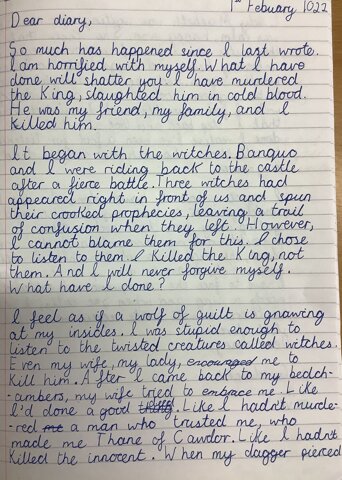 1st Febuary 1022
Dear diary,
So much has happened since I last wrote.
I am horrified with myself. What I have
done will shatter you. I have murdered
the King, slaughted him in cold blood.
He was my friend, my family, and I
killed him.
It began with the witches. Banquo
and I were riding back to the castle
after a fierce battle. Three witches had
appeared right in front of us and spun
their crooked prophecies, leaving a trail
of confusion when they left. However,
I cannot blame them for this. I chose
to listen to them I killed the King, not
them. And I will never forgive myself.
What have I done?
I feel as if a wolf of guilt is gnawing
at my insides. I was stupid enough to
listen to the twisted creatures called witches.
Even my wife, my lady, encouraged me to
kill him. After I came back to my bedch-
-ambers, my wife tried to embrace me. Like
I'd done a good thing. Like I hadn't murde-
-red me a man who trusted me, who
made me Thane of Cawdor. Like I hadn't
killed the innocent. When my dagger pierced